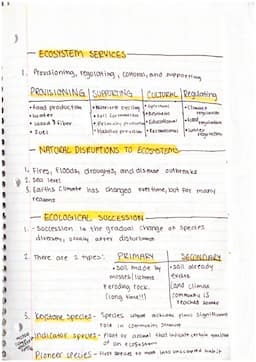 ECOSYSTEM SERVICES
1. Provisioning, regulating, cultural, and supporting
PROVISIONING | SUPPORTING | CULTURAL | Regulating
• food production • Nutrient cycling • Spiritual • Climate regulation
• water • Soil formation • Educational • flood regulation
• wood & fiber • Primary production • Recreational • water regulation
• fuel • Habitat provision
NATURAL DISRUPTIONS TO ECOSYSTEMS
1. Fires, floods, droughts, and disease outbreaks
2. sea level
3. Earths climate has changed overtime, but for many
reasons
ECOLOGICAL SUCCESSION
1. - Succession is the gradual change of species
diversity, usually after disturbance
2. There are 2 types: PRIMARY SECONDARY
• soil made by • soil already
mosses/lichens exists
eroding rock. (and climax
(long time!!) community is
reached sooner
3. Keystone species - Species whose actions plays significant
role in community structure
Indicator species - Plant or animal that indicate certain qualities
of an ecosystem
Pioneer species - First species to